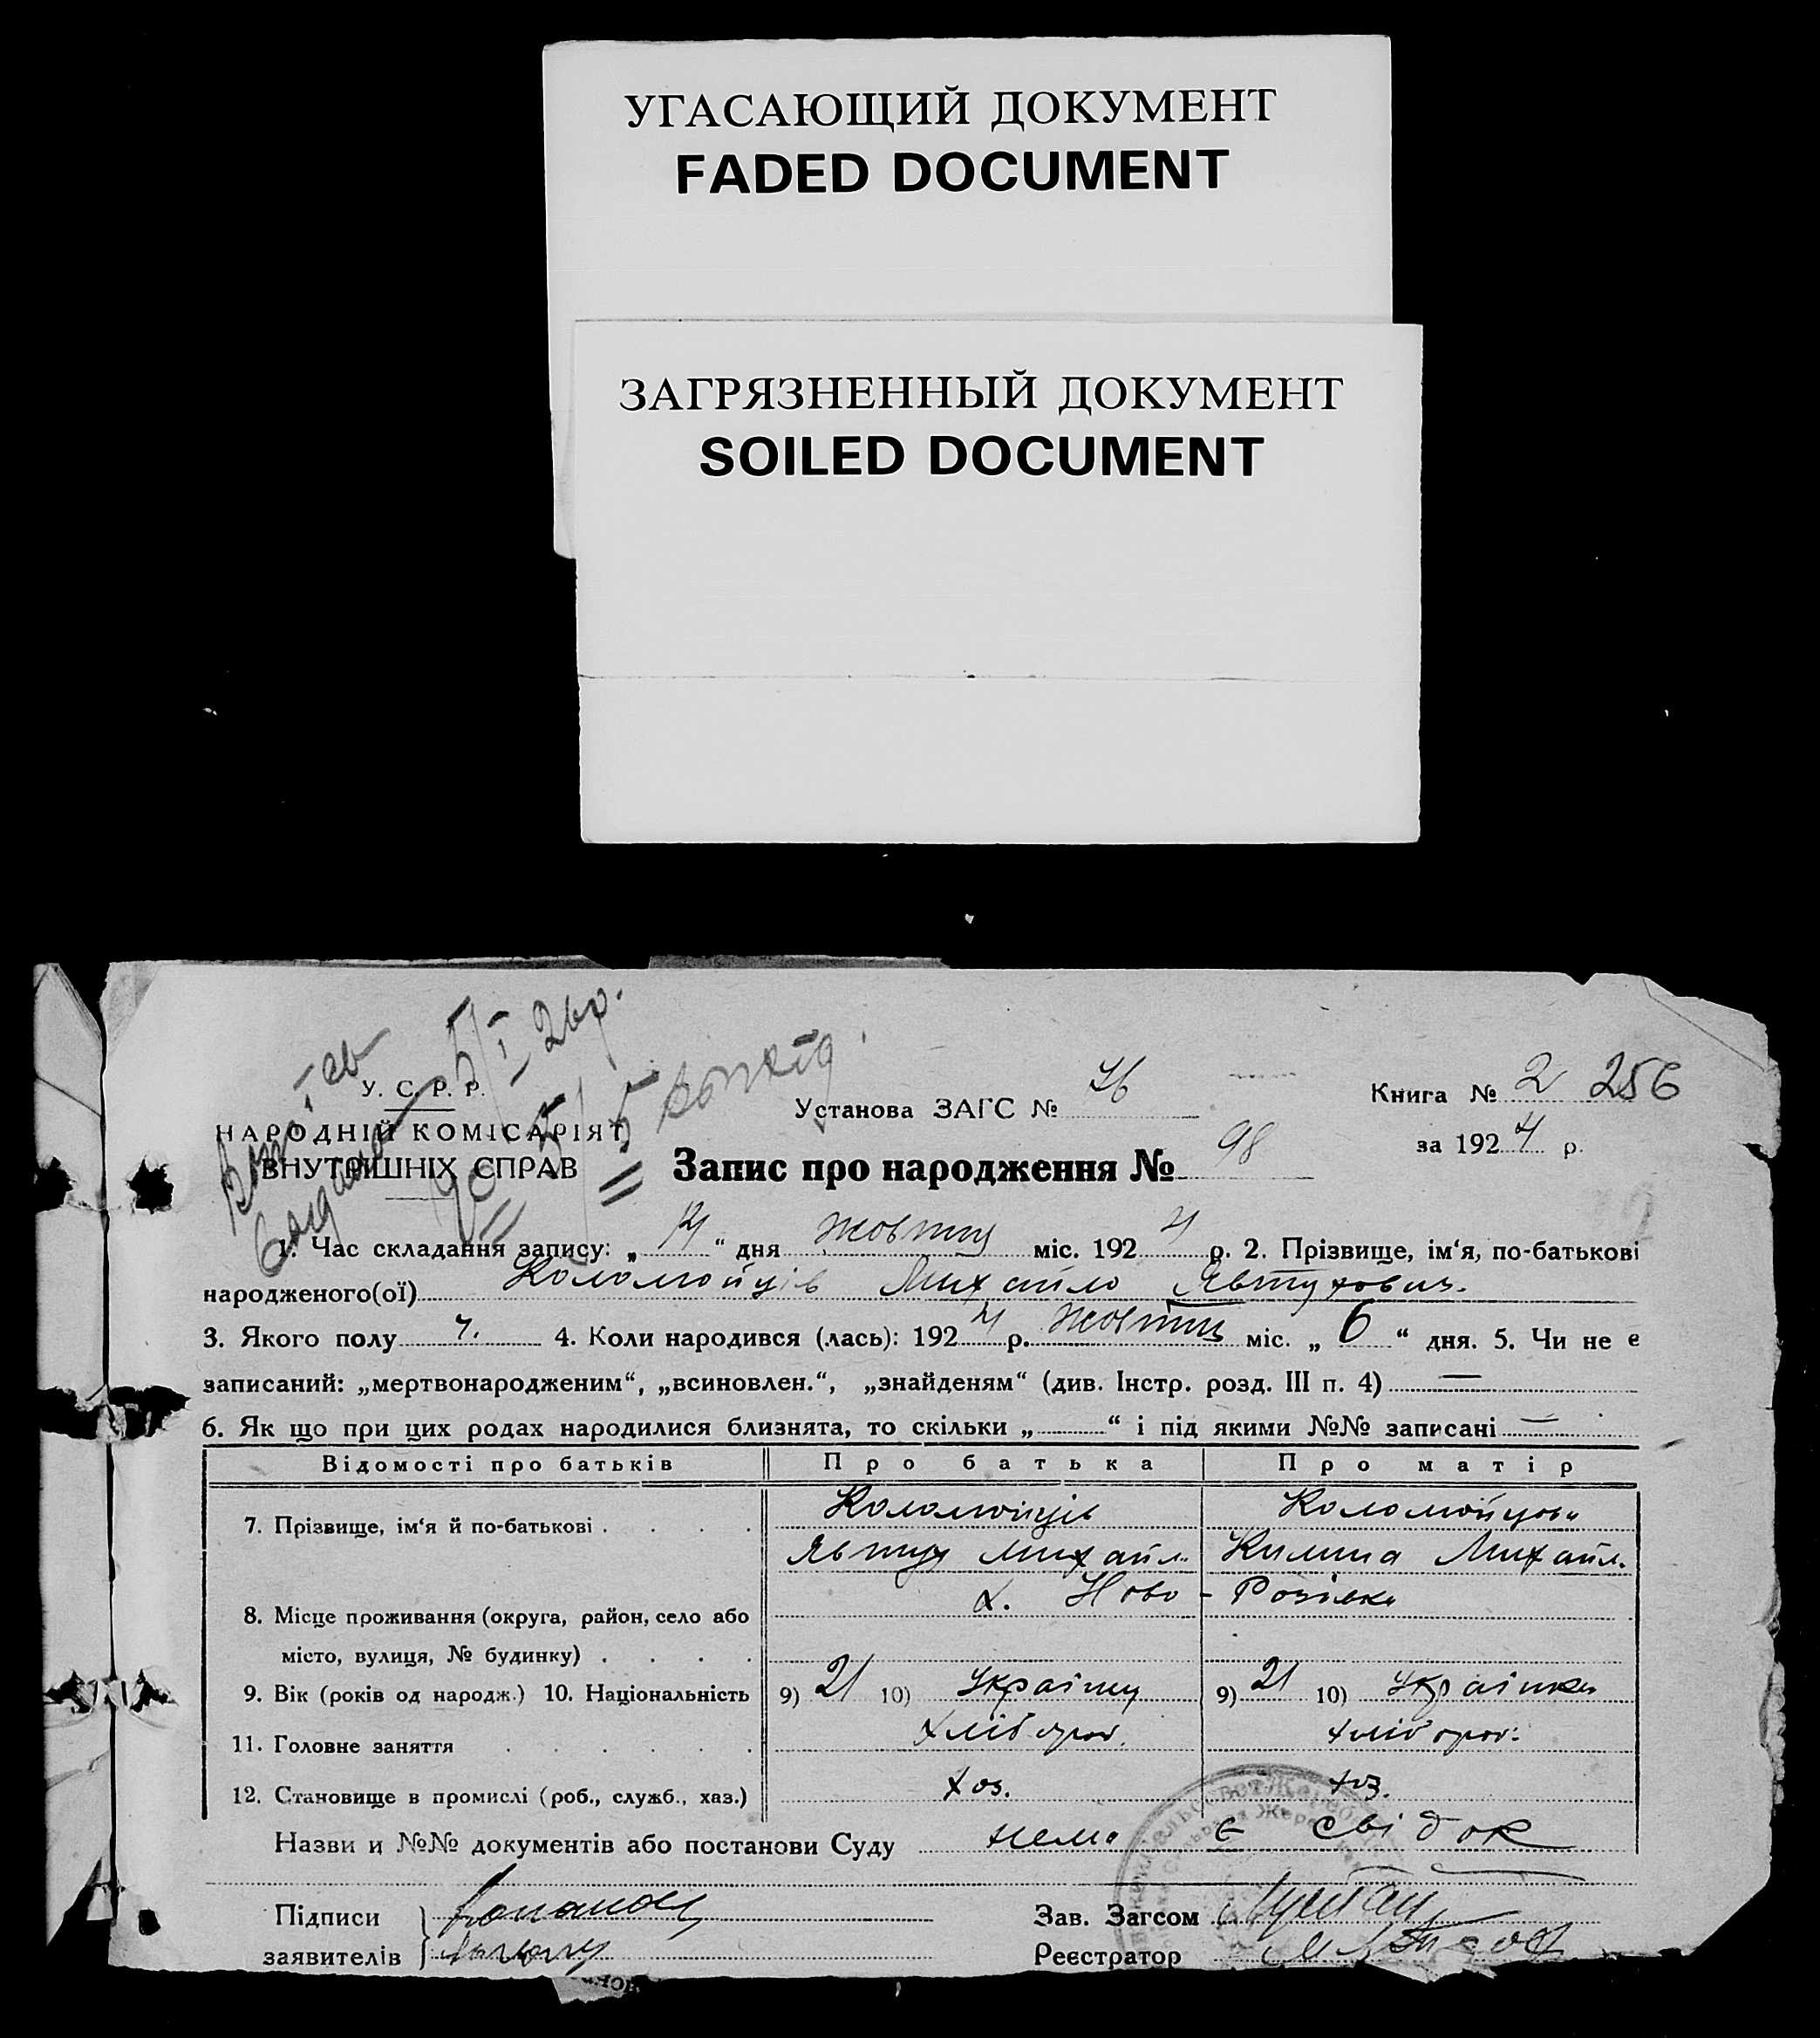 УГАСАЮЩИЙ ДОКУМЕНТ
FADED DOCUMENT
ЗАГРЯЗНЕННЫЙ ДОКУМЕНТ
SOILED DOCUMENT
У. С. Р. Р.
НАРОДНІЙ КОМІСАРІЯТ
ВНУТРІШНІХ СПРАВ
Установа ЗАГС №
Книга № 2 256
за 1924 р.
Запис про народження № 98
1. Час складання запису: „ “ дня жовтня міс. 1924 р. 2. Прізвище, ім‘я, по-батькові
народженого(ої) Коломойців Михайло Явтухович.
3. Якого полу ч. 4. Коли народився (лась): 1924 р. жовтня міс. „ 6 “ дня. 5. Чи не є
записаний: „мертвонародженим“, „всиновлен.“, „знайденям“ (див. Інстр. розд. III п. 4) —
6. Як що при цих родах народилися близнята, то скільки „ “ і під якими №№ записані —
Відомості про батьків Про батька Про матір
7. Прізвище, ім‘я й по-батькові Коломойців Коломойцова
Явтух Михайл. Килина Михайл.
8. Місце проживання (округа, район, село або х. Ново - Розівка
місто, вулиця, № будинку)
9. Вік (років од народж.) 10. Національність 9) 21 10) Українец 9) 21 10) Українка
11. Головне заняття хлібороб. хлібороб.
12. Становище в промислі (роб., служб., хаз.) хоз. хоз.
Назви и №№ документів або постанови Суду нема є свідок
Підписи
заявителів
Зав. Загсом
Реєстратор